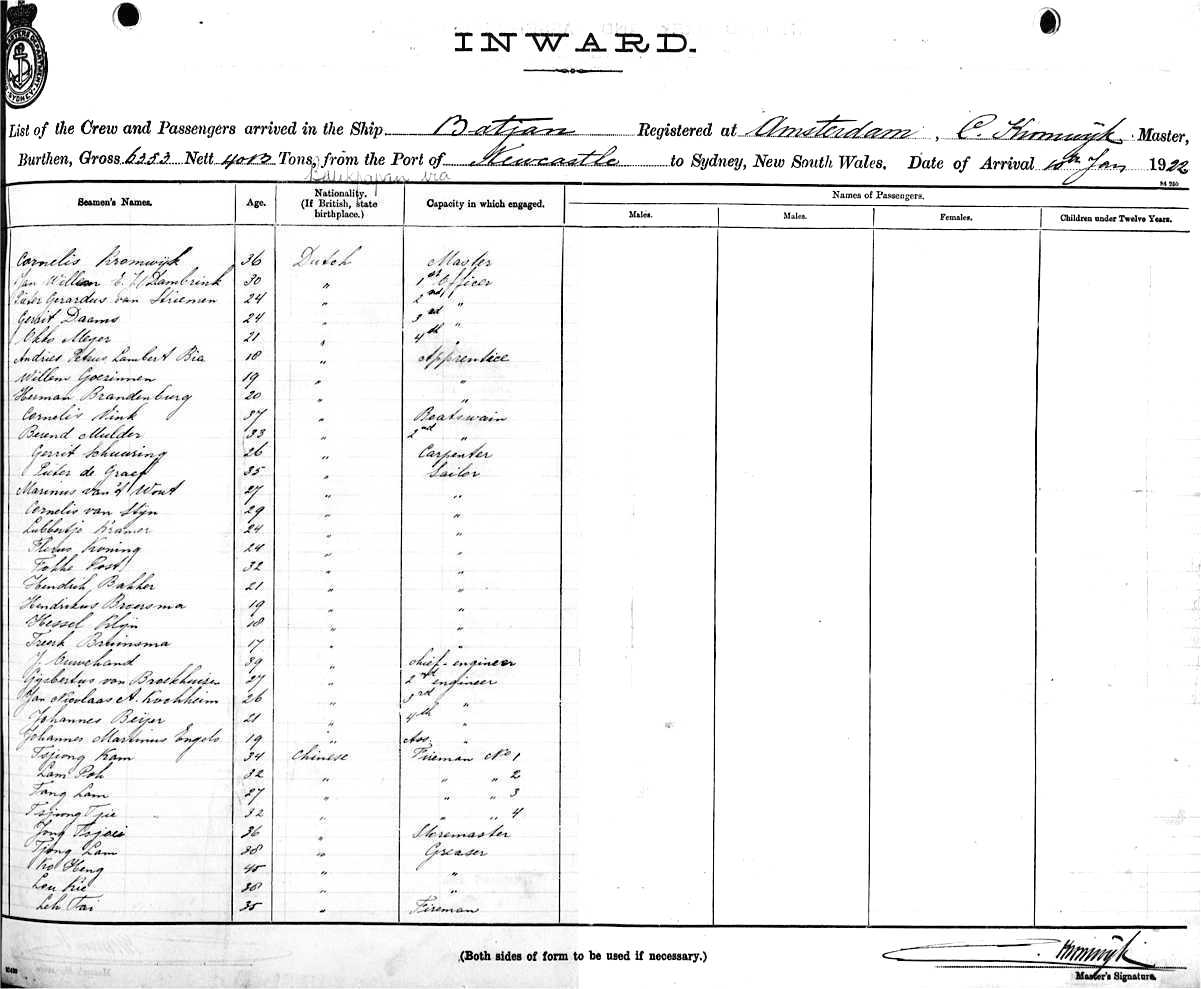 INWARD.
List of the Crew and Passengers arrived in the Ship Batjan Registered at Amsterdam, C. Kromwijk Master,
Burthen, Gross 6353 Nett 4013 Tons, from the Port of Newcastle to Sydney, New South Wales. Date of Arrival 10th Jan 1922
Balikpapan via
Seamen's Names. Age. Nationality. (If British, state birthplace.) Capacity in which engaged. Names of Passengers.
Males. Males. Females. Children under Twelve Years.
Cornelis Kromwijk 36 Dutch Master
Jan Willem Lambrink 30 " 1st Officer
Pieter Gerardus van Strienen 24 " 2nd "
Gerrit Daams 24 " 3rd "
Okko Meyer 21 " 4th "
Andries Petrus Lambert Bia 18 " Apprentice
Willem Goerinnen 19 " "
Herman Brandenburg 20 " "
Cornelis Vink 37 " Boatswain
Berend Mulder 33 " 2nd "
Gerrit Schuuring 26 " Carpenter
Pieter de Graef 35 " Sailor
Marinus van 't Wout 27 " "
Cornelis van Stijn 29 " "
Lubbertje Kramer 24 " "
Koning 24 " "
Fokke Post 32 " "
Hendrik Bakker 21 " "
Hendrikus Broersma 19 " "
Hessel 18 " "
Bruinsma 17 " "
J. Ouwehand 39 " chief-engineer
Gysbertus van Broekhuizen 27 " 2nd engineer
Jan Nicolaas A. Kochheim 26 " 3rd "
Johannes Beijer 21 " 4th "
Johannes Martinus Engels 19 " Ass. "
Tsjiong Kam 34 Chinese Fireman No 1
Lam Poh 32 " " " 2
Tang Lam 27 " " " 3
Tsjiong Tjie 32 " " " 4
Jong Tsjoei 36 " Storemaster
Tjong Lam 38 " Greaser
Ko Heng 45 " "
Lou Kie 38 " "
Leh Tai 35 " Fireman
(Both sides of form to be used if necessary.)
C. Kromwijk
Master's Signature.